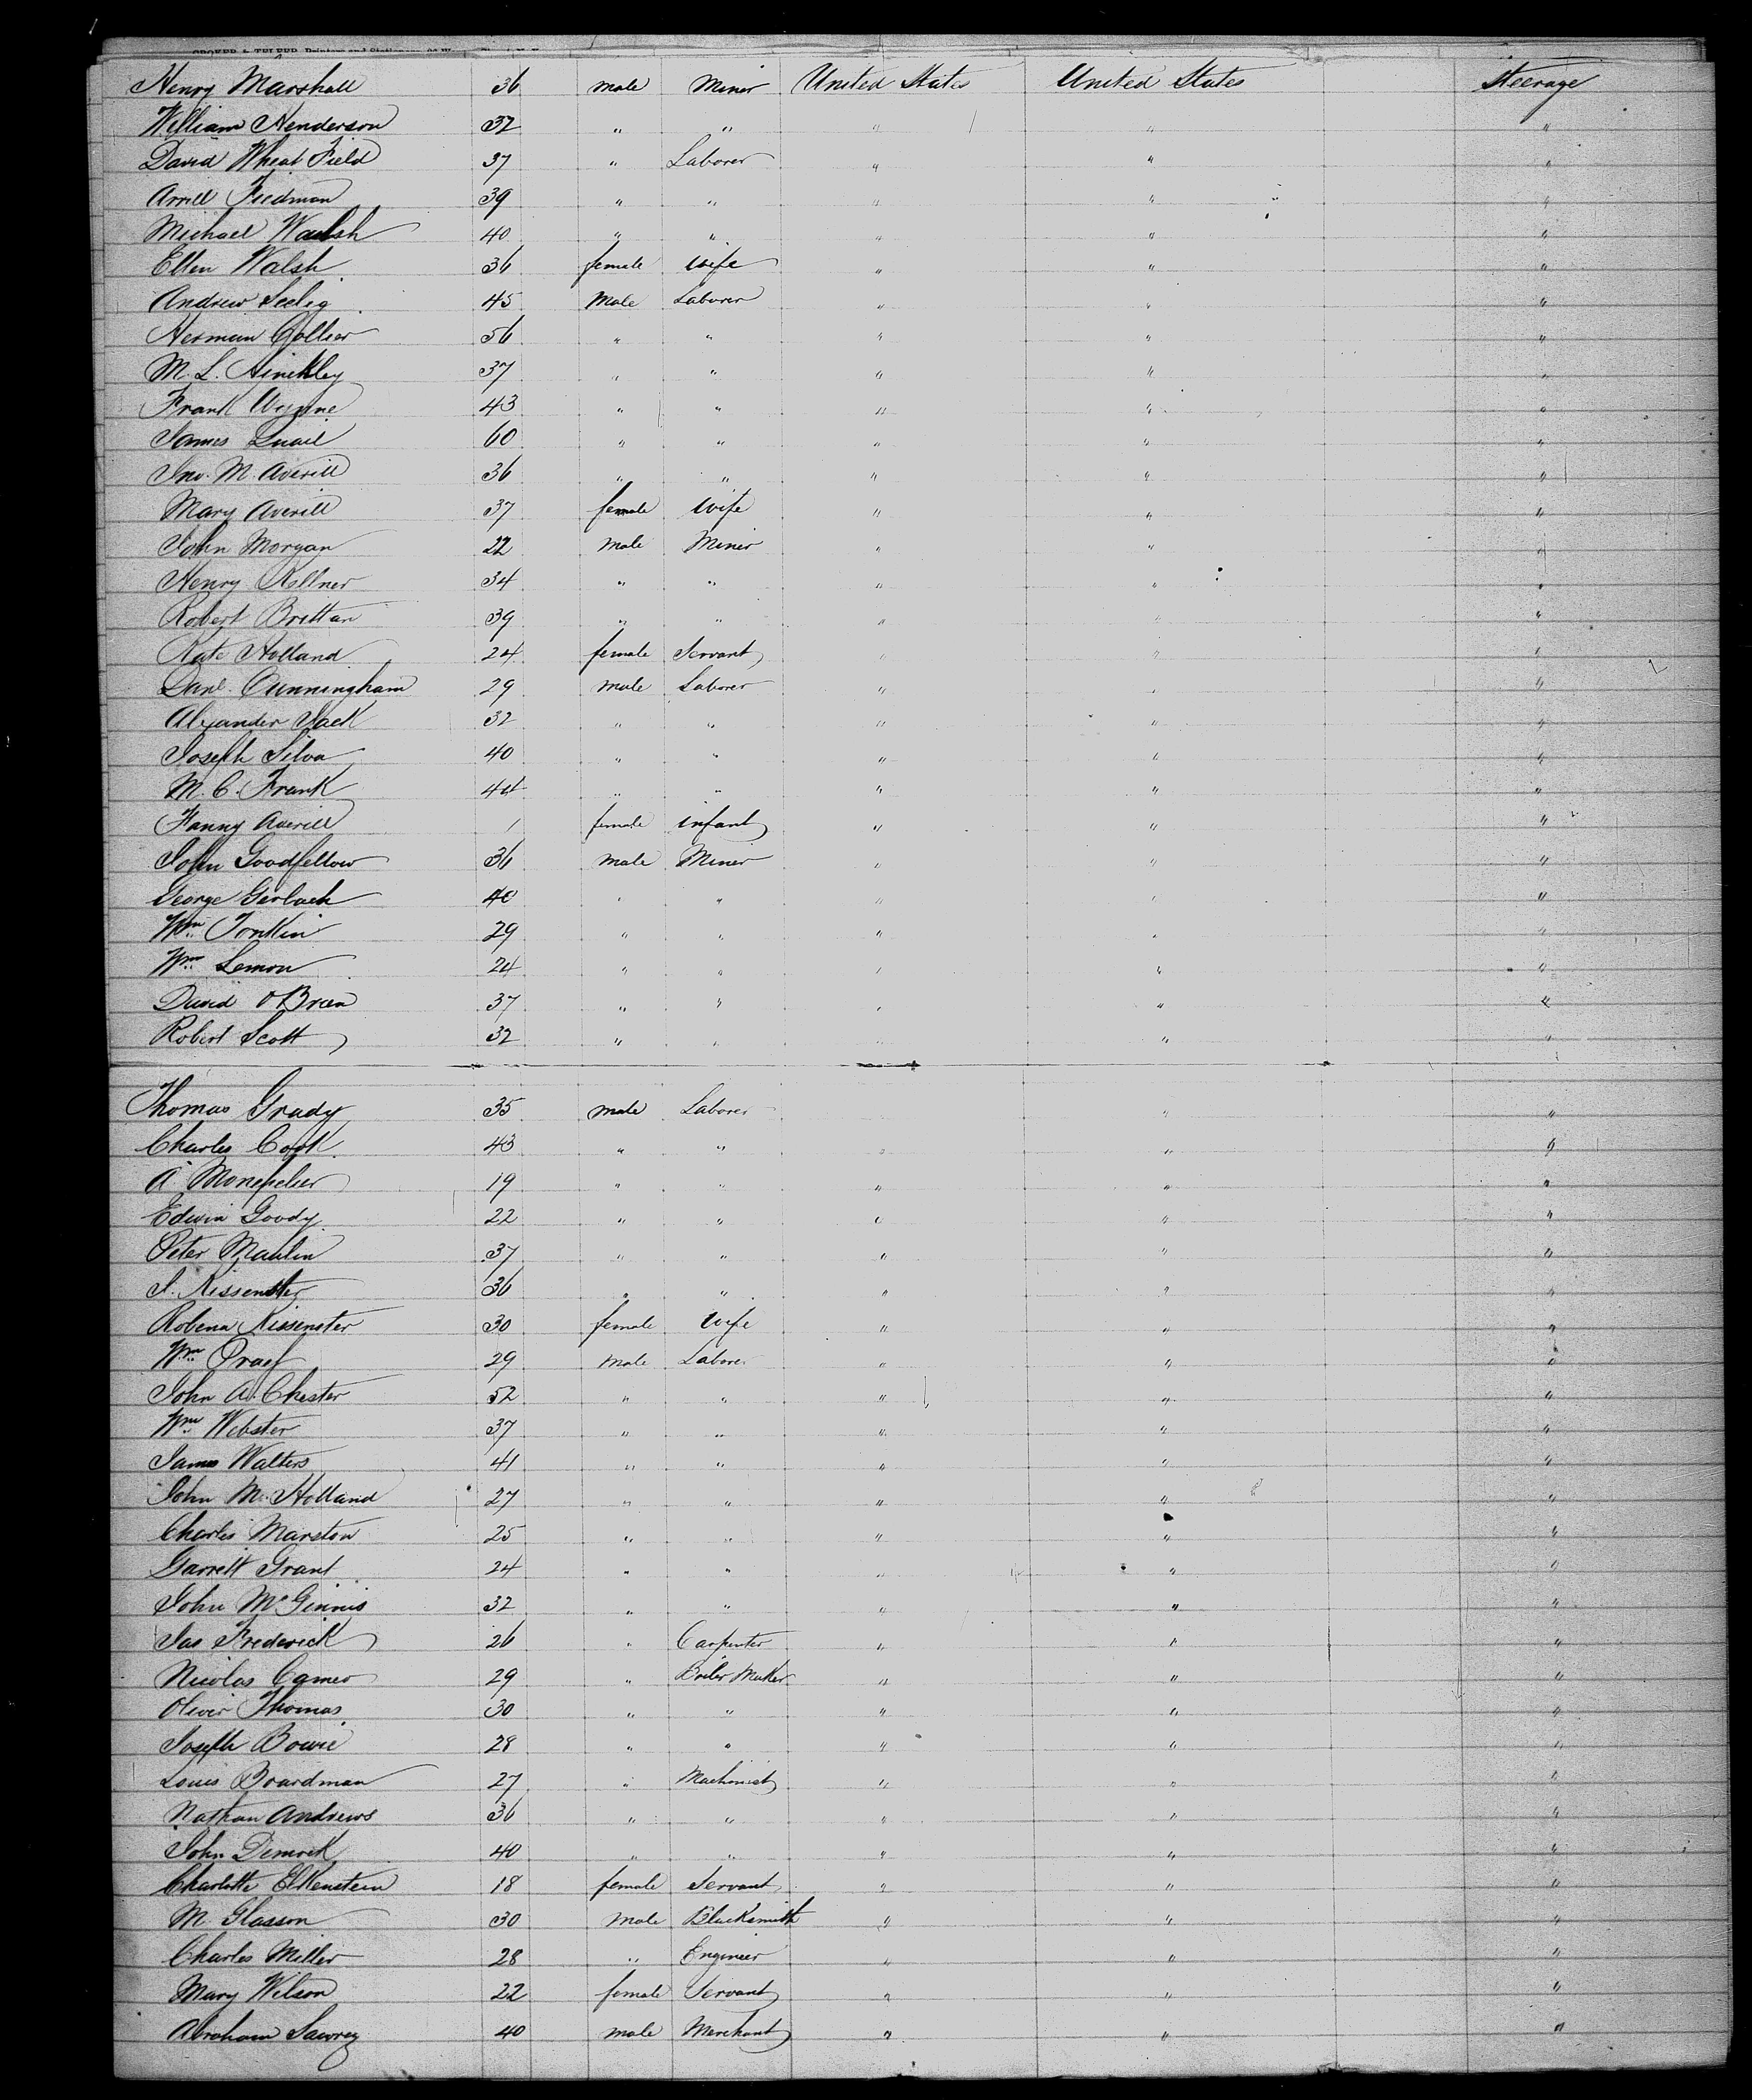 Henry Marshall 36 male Miner United States United States Steerage
William Henderson 32 " " " " "
David Wheat Field 37 " Laborer " " "
Arrill Feedman 39 " " " " "
Michael Walsh 40 " " " " "
Ellen Walsh 36 female wife " " "
Andrew Seelig 45 Male Laborer " " "
Herman Collier 56 " " " " "
M. L. Hinckley 37 " " " " "
Frank 43 " " " " "
James Quail 60 " " " " "
Jno. M. Averill 36 " " " " "
Mary Averill 37 female wife " " "
John Morgan 22 male Miner " " "
Henry Kellner 34 " " " " "
Robert Brittan 39 " " " " "
Kate Holland 24 female Servant " " "
Danl. Cunningham 29 male Laborer " " "
Alexander Jack 32 " " " " "
Joseph Silva 40 " " " " "
M. C. Frank 44 " " " " "
Fanny Averill 1 female infant " " "
John Goodfellow 36 male Miner " " "
George Gerlach 40 " " " " "
Wm Tonkin 29 " " " " "
Wm Lemon 24 " " " " "
David OBrien 37 " " " " "
Robert Scott 32 " " " " "
Thomas Grady 35 male Laborer " "
Charles Cook 43 " " " " "
A Monepelier 19 " " " " "
Edwin Goody 22 " " " " "
Peter Maulin 37 " " " " "
36 " " " " "
Robena 30 female wife " " "
Wm 29 male Laborer " " "
John A. Chester 52 " " " " "
Wm Webster 37 " " " " "
James Walters 41 " " " " "
John Mc Holland 27 " " " " "
Charles Marston 25 " " " " "
Garrett Grant 24 " " " " "
John McGinnis 32 " " " " "
Jas Frederick 26 " Carpenter " " "
Nicolas Cameo 29 " Boiler Maker " " "
Oliver Thomas 30 " " " " "
Joseph Bowie 28 " " " " "
Louis Boardman 27 " Machinist " " "
Nathan Andrews 36 " " " " "
John Demick 40 " " " " "
Charlotte Elkenstein 18 female Servant " " "
M. Glasson 30 male Blacksmith " " "
Charles Miller 28 " Engineer " " "
Mary Wilson 22 female Servant " " "
Abraham Sawrey 40 male Merchant " " "